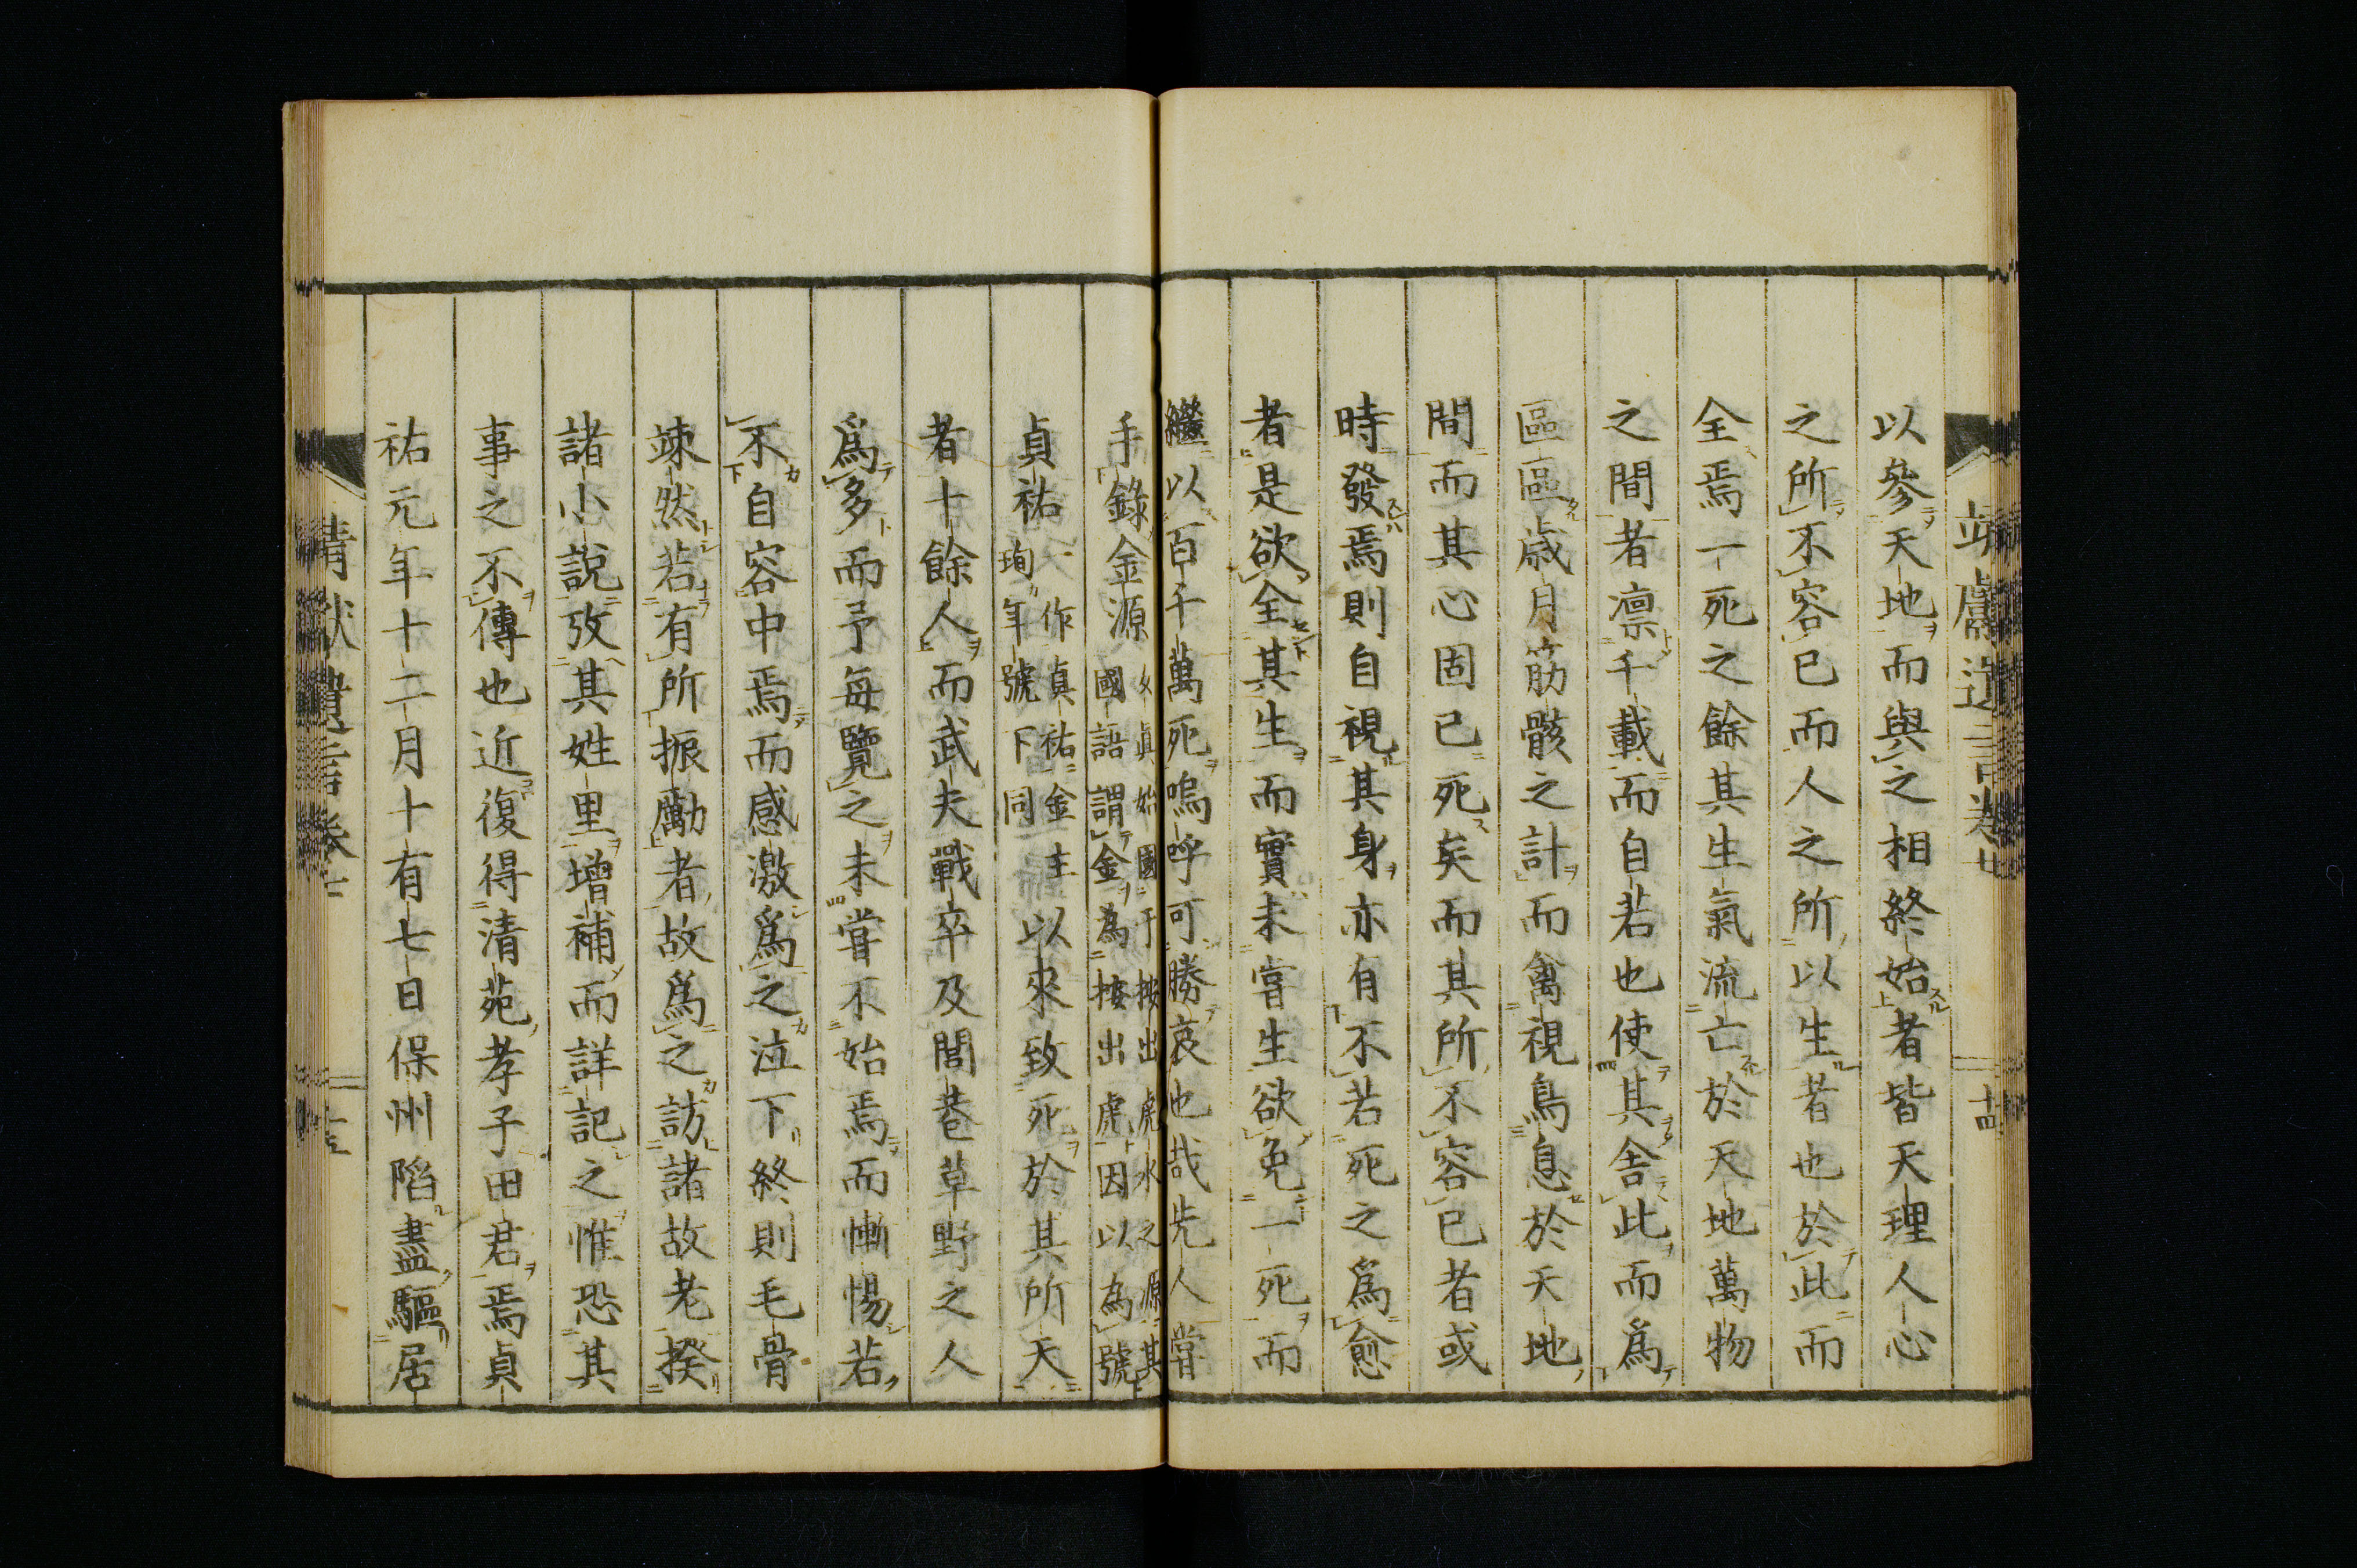 以參天地而與之相終始者皆天理人心
之所不容已而人之所以生者也於此而
全焉一死之餘其生氣流亡於天地萬物
之間者凛千載而自若也使其舍此而爲
區區歳月筋骸之計而禽視鳥息於天地
間而其心固已死矣而其所不容已者或
時發焉則自視其身亦有不若死之爲愈
者是欲全其生而實未嘗生欲免一死而
繼以百千萬死嗚呼可勝哀也哉先人嘗
手錄金源
女眞始國于按出虎水之源其
國語謂金為按出虎因以為號
貞祐
一作貞祐金主
珣年號下同
以來致死於其所天
者十餘人而武夫戰卒及閭巷草野之人
爲多而予每覽之未嘗不始焉而慚惕若
不自容中焉而感激爲之泣下終則毛骨
竦然若有所振勵者故爲之訪諸故老揆
諸小說攷其姓里增補而詳記之惟恐其
事之不傳也近復得清苑孝子田君焉貞
祐元年十二月十有七日保州陷盡驅居